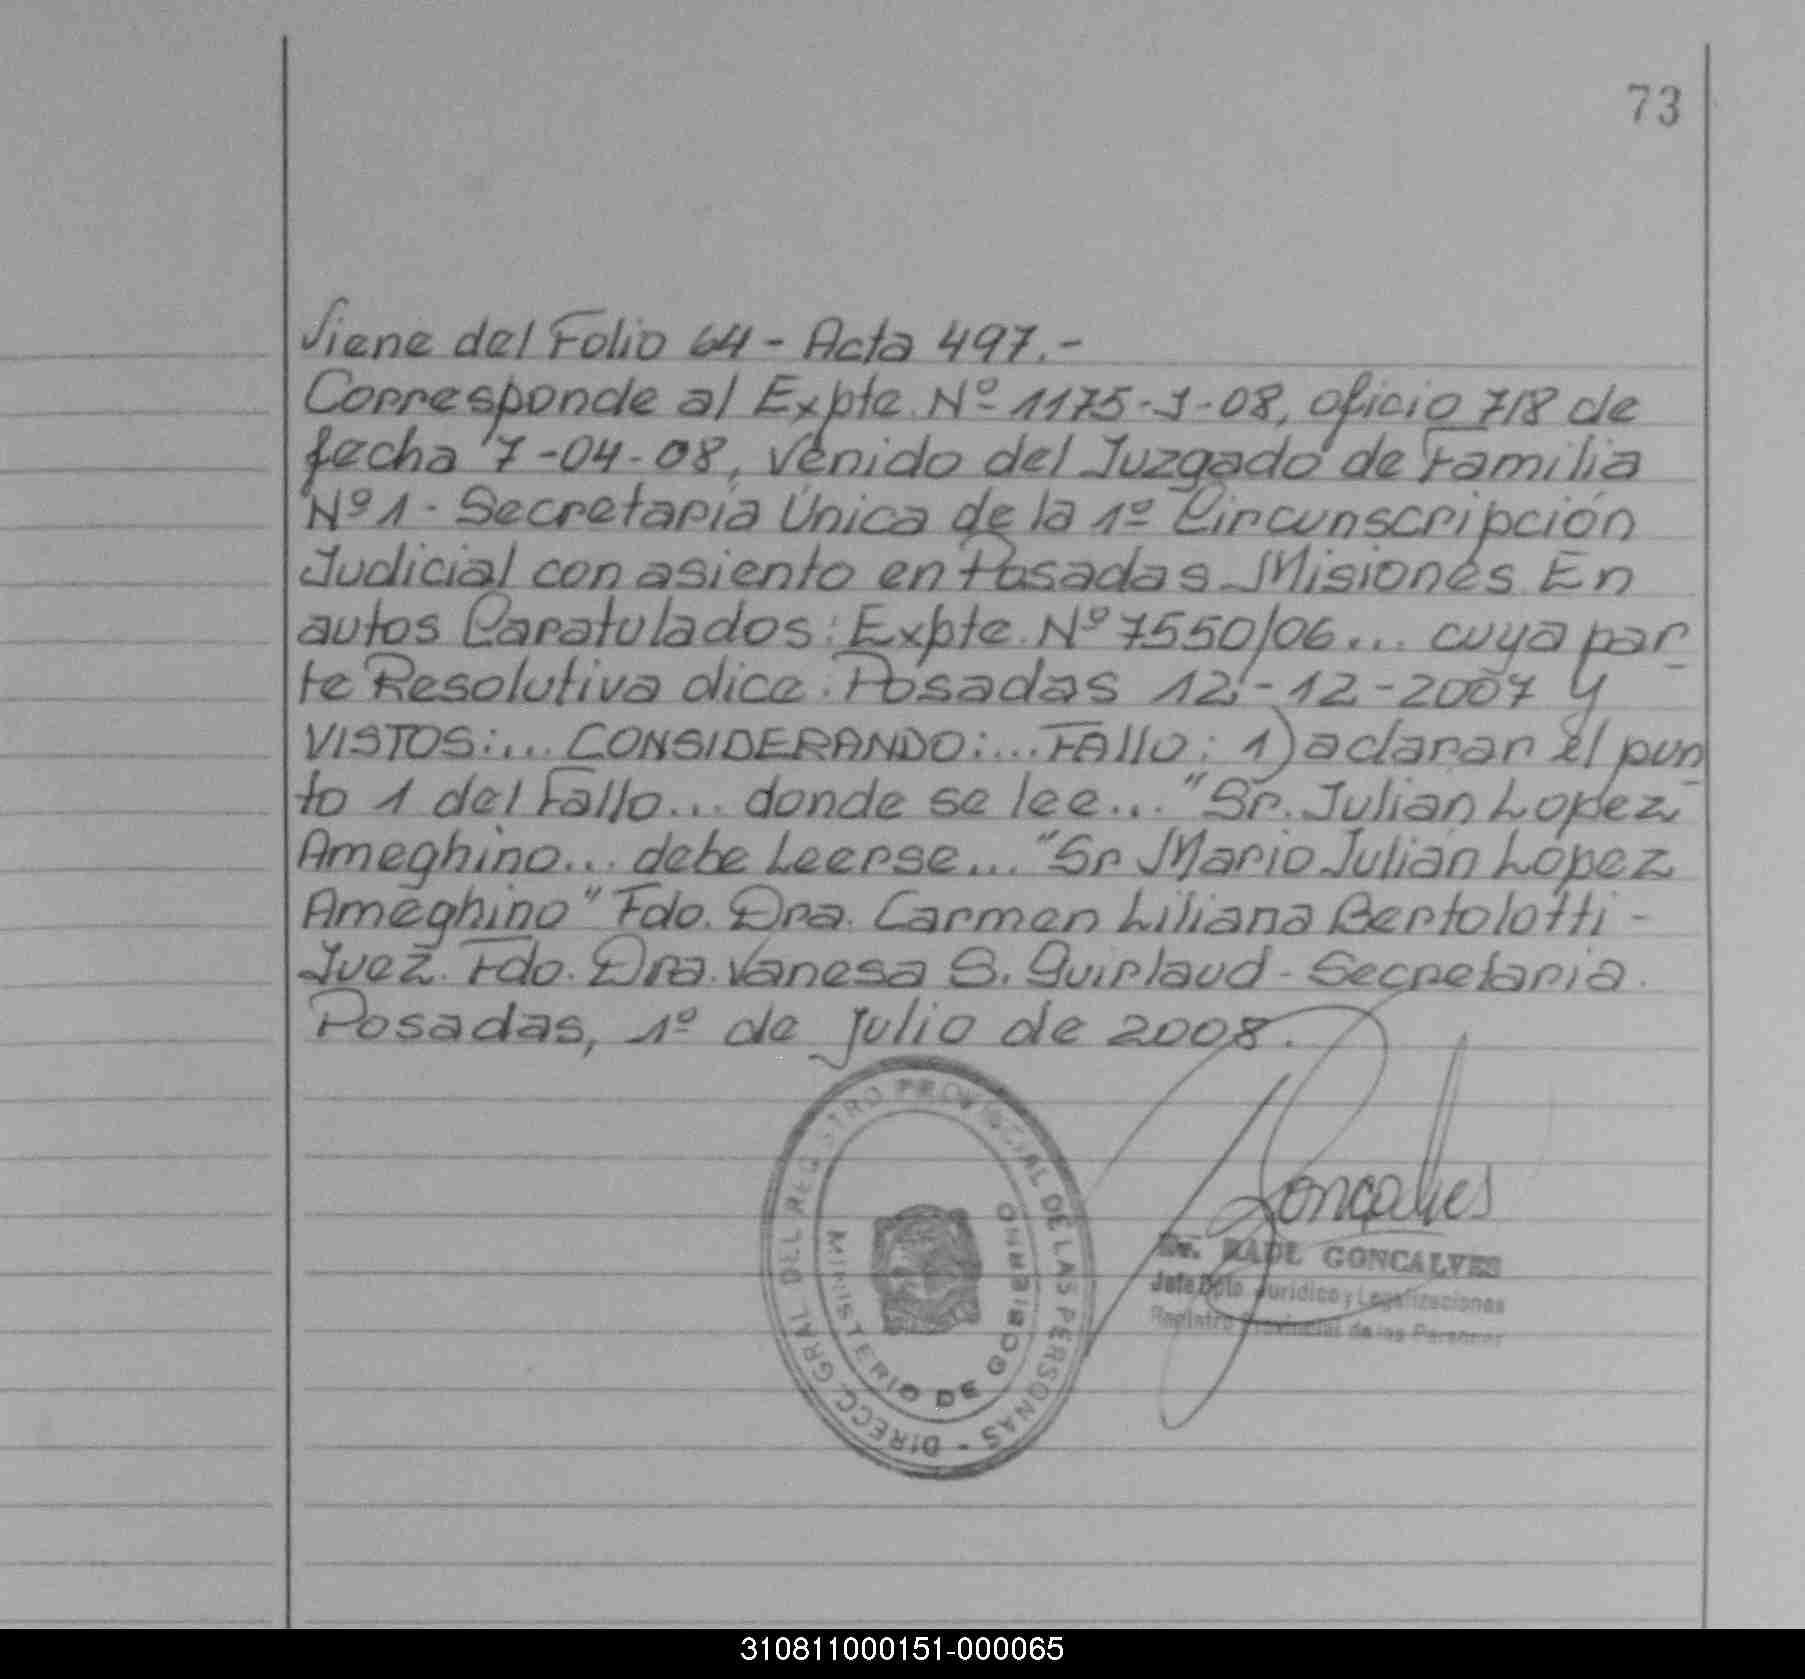 73
Viene del Folio 64 - Acta 497.-
Corresponde al Expte. Nº 1175-J-08, oficio 718 de
fecha 7-04-08, Venido del Juzgado de Familia
Nº 1 - Secretaría Única de la 1º Circunscripción
Judicial con asiento en Posadas Misiones. En
autos Caratulados: Expte. Nº 7550/06... cuya par
te Resolutiva dice: Posadas 12-12-2007 y
VISTOS:... CONSIDERANDO:... FALLO: 1) aclarar el pun
to 1 del Fallo... donde se lee... "Sr. Julián Lopez
Ameghino... debe Leerse... "Sr Mario Julián López
Ameghino" Fdo. Dra. Carmen Liliana Bertolotti -
Juez. Fdo. Dra. Vanesa S. Guirlaud - Secretaria.
Posadas, 1º de julio de 2008.
DIRECC. GRAL. DEL REGISTRO PROVINCIAL DE LAS PERSONAS -
MINISTERIO DE GOBIERNO
Goncalves
Dr. RAUL GONCALVES
Jefe Dpto. Jurídico y Legalizaciones
Registro Provincial de las Personas
310811000151-000065